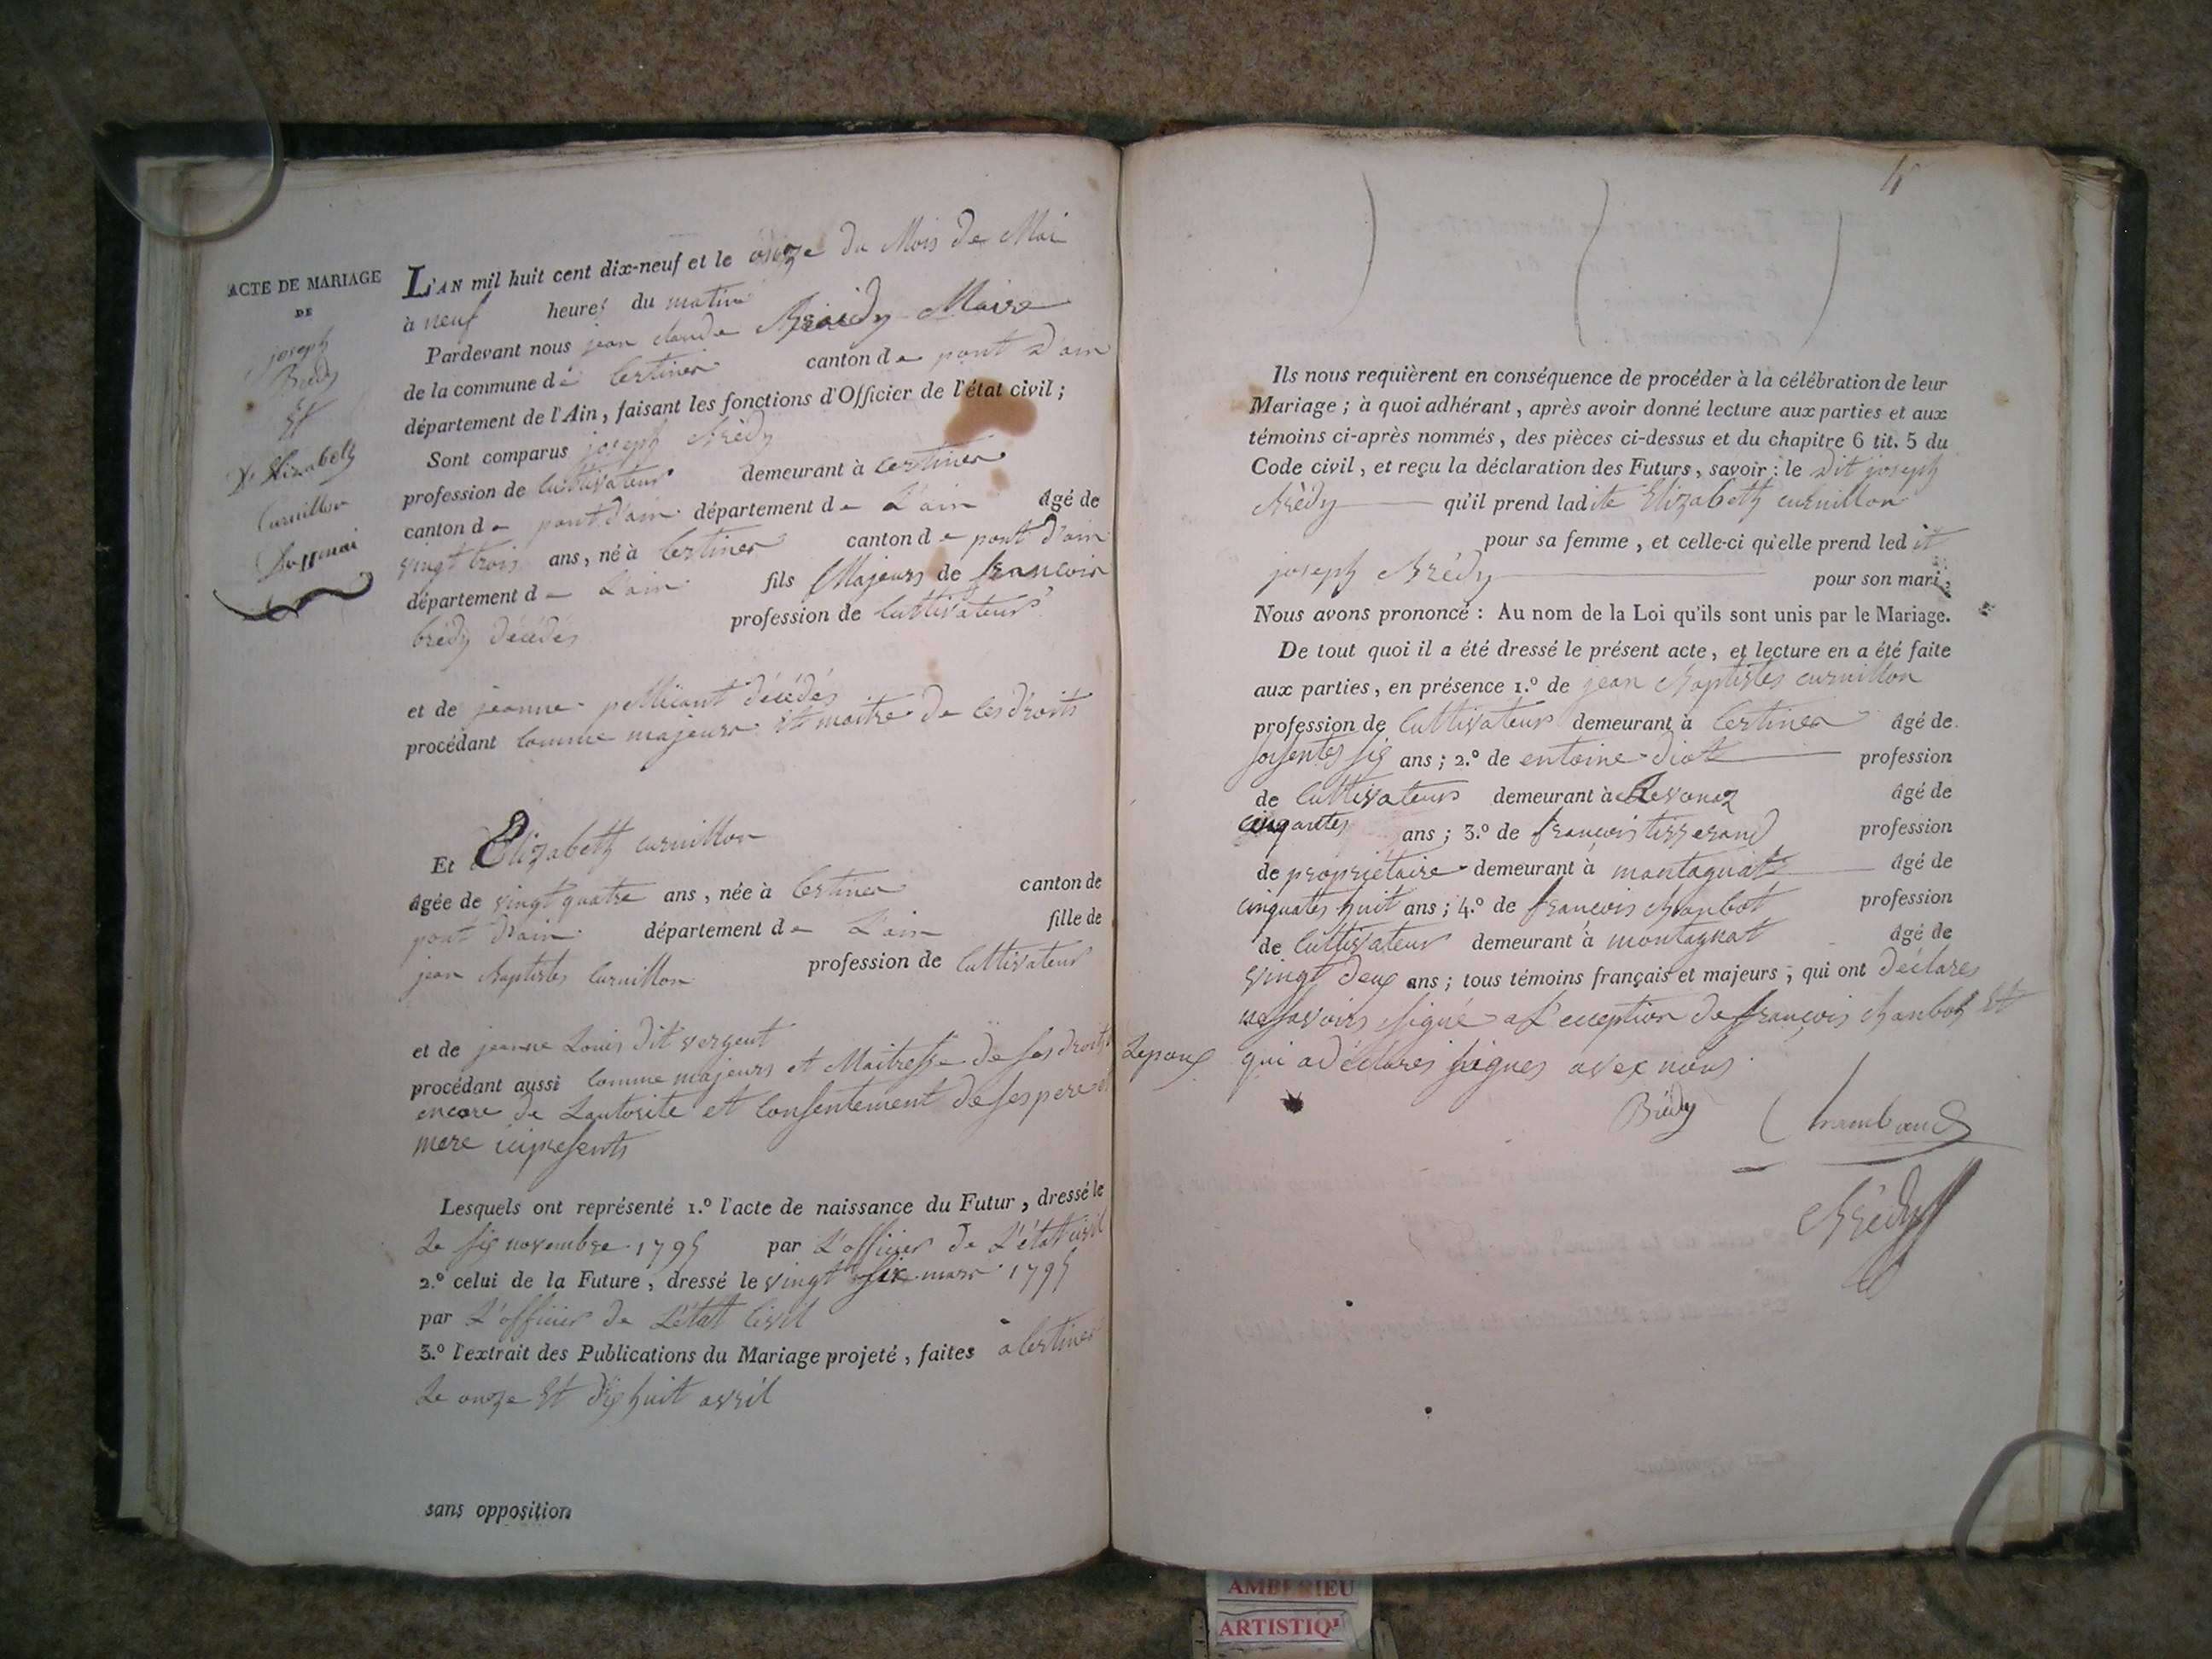 ACTE DE MARIAGE
DE
joseph
Brédy
Et
D. Elizabeth
Curnillon
Du 11 mai
L'AN mil huit cent dix-neuf et le onze du Mois de Mai
à neuf heures du matin
Pardevant nous jean claude Brédy Maire
de la commune de Certines canton de pont d'ain
département de l'Ain, faisant les fonctions d'Officier de l'état civil;
Sont comparus joseph Brédy
profession de Cultivateur demeurant à Certines
canton de pont d'ain département de L'ain âgé de
vingt trois ans, né à Certines canton de pont d'ain
département de L'ain fils Majeurs de francois
brédy décédés profession de Cultivateurs
et de jeanne pellicant décédés
procédant Comme majeurs et maitre de ces droits
Et Elizabeth curnillon
âgée de vingt quatre ans, née à Certines canton de
pont d'ain département de L'ain fille de
jean Baptistes Curnillon profession de Cultivateur
et de jeanne Louis dit vergent
procédant aussi Comme majeurs et Maitresse de ses droits
encore de Lautorite et Consentement de ses pere et
mere icipresents
Lesquels ont représenté 1.º l'acte de naissance du Futur, dressé le
Le six novembre 1795 par L'officier de L'état civil
2.º celui de la Future, dressé le vingt six mars 1795
par L'officier de L'état Civil
3.º l'extrait des Publications du Mariage projeté, faites a Certines
Le onze Et dix huit avril
sans opposition
Ils nous requièrent en conséquence de procéder à la célébration de leur
Mariage; à quoi adhérant, après avoir donné lecture aux parties et aux
témoins ci-après nommés, des pièces ci-dessus et du chapitre 6 tit. 5 du
Code civil, et reçu la déclaration des Futurs, savoir: le dit joseph
Brédy qu'il prend ladite Elizabeth curnillon
pour sa femme, et celle-ci qu'elle prend ledit
joseph Brédy pour son mari;
Nous avons prononcé: Au nom de la Loi qu'ils sont unis par le Mariage.
De tout quoi il a été dressé le présent acte, et lecture en a été faite
aux parties, en présence 1.º de jean Baptistes curnillon
profession de Cultivateur demeurant à Certines âgé de
soisentes six ans; 2.º de entoine diot profession
de Cultivateur demeurant à Revonaz âgé de
cinqantes ans; 3.º de francois tisserand profession
de propriétaire demeurant à montagnat âgé de
cinquates huit ans; 4.º de françois chanbot profession
de Cultivateur demeurant à montagnat âgé de
vingt deux ans; tous témoins français et majeurs, qui ont déclares
ne savoirs signé a L'eception de françois chanbot Et
Lepoux qui a déclares signes avex nous
Brédy
Brédy
AMBERIEU
ARTISTIQ